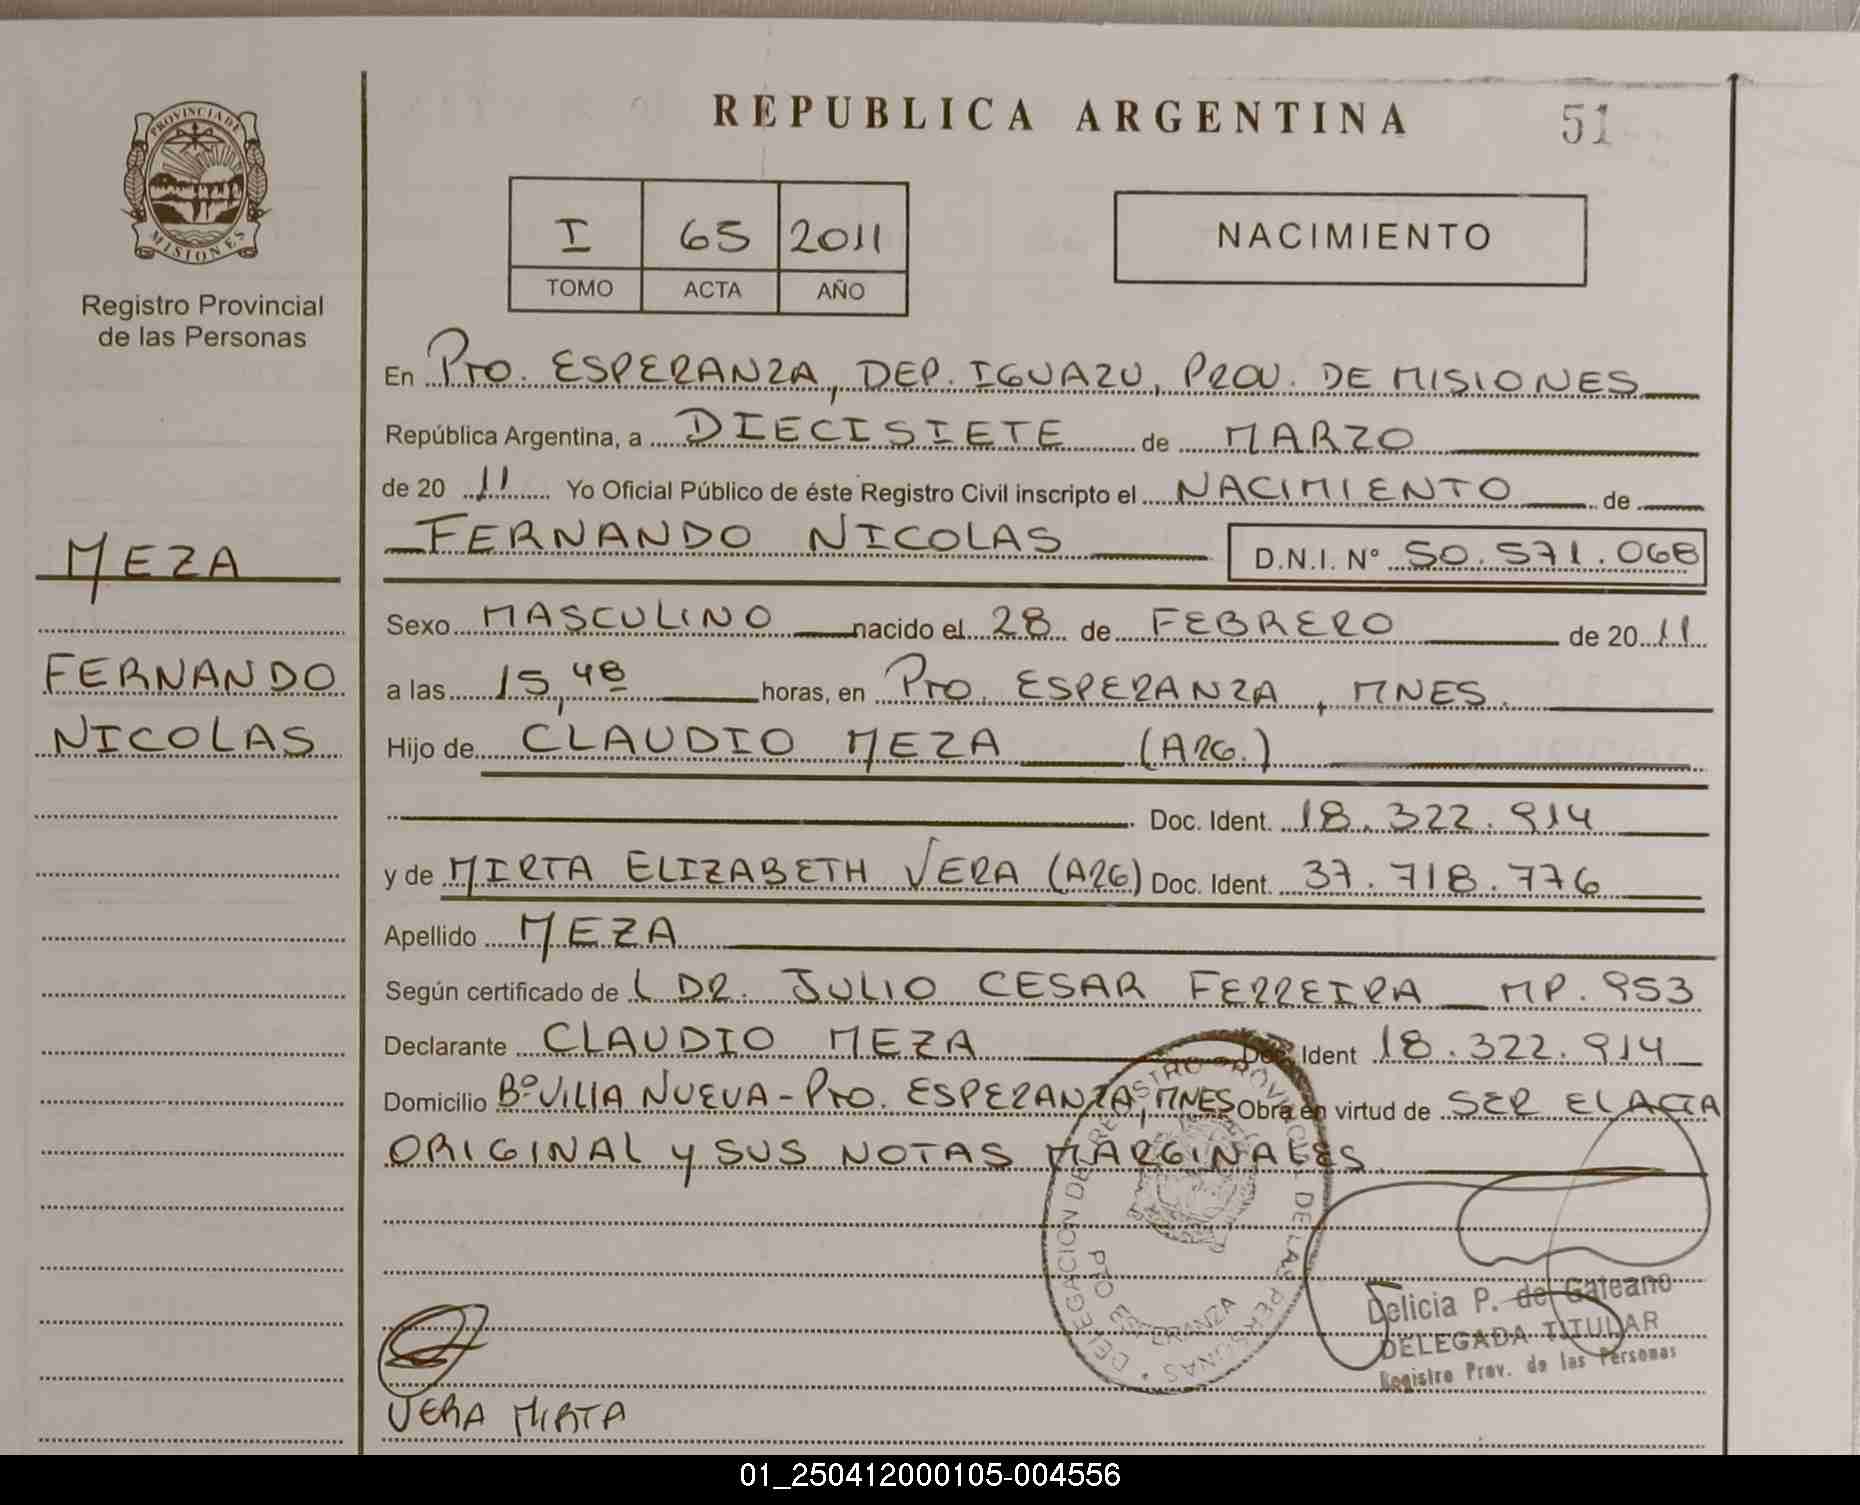 REPUBLICA ARGENTINA
51
PROVINCIA DE
MISIONES
Registro Provincial
de las Personas
I 65 2011
TOMO ACTA AÑO
NACIMIENTO
En Pto. ESPERANZA, DEP. IGUAZU, PROV. DE MISIONES
República Argentina, a DIECISIETE de MARZO
de 20 11 Yo Oficial Público de éste Registro Civil inscripto el NACIMIENTO de
FERNANDO NICOLAS D.N.I. Nº 50.571.068
MEZA
FERNANDO
NICOLAS
Sexo MASCULINO nacido el 28 de FEBRERO de 20 11
a las 15,48 horas, en Pto. ESPERANZA, MNES.
Hijo de CLAUDIO MEZA (ARG.)
Doc. Ident. 18.322.914
y de MIRTA ELIZABETH VERA (ARG) Doc. Ident. 37.718.776
Apellido MEZA
Según certificado de L DR. JULIO CESAR FERREIRA MP. 953
Declarante CLAUDIO MEZA Doc. Ident 18.322.914
Domicilio Bº VILLA NUEVA - Pto. ESPERANZA, MNES Obra en virtud de SER EL ACTA
ORIGINAL Y SUS NOTAS MARGINALES
DELEGACION DEL REGISTRO PROVINCIAL DE LAS PERSONAS
PTO ESPERANZA
Delicia P. de Galeano
DELEGADA TITULAR
Registro Prov. de las Personas
VERA MIRTA
01_250412000105-004556